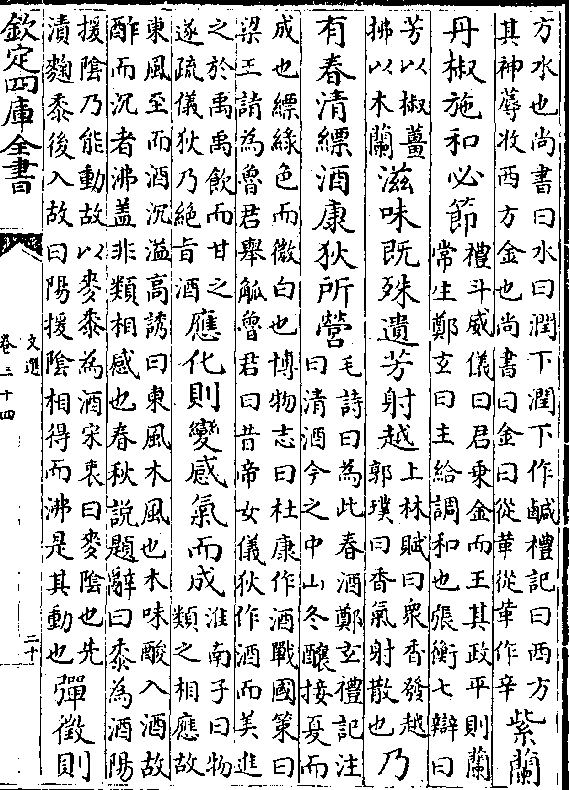 方水也尚書曰水曰潤下潤下作鹹禮記曰西方
其神蓐收西方金也尚書曰金曰從革從革作辛
紫蘭
丹椒施和必節
禮斗威儀曰君乗金而王其政平則蘭
常生鄭玄曰主給調和也張衡七辯曰
芳以椒薑
拂以木蘭
滋味既殊遺芳射越
上林賦曰衆香發越
郭璞曰香氣射散也
乃
有春清縹酒康狄所營
毛詩曰為此春酒鄭玄禮記注
曰清酒今之中山冬釀接夏而
成也縹綠色而微白也博物志曰杜康作酒戰國策曰
梁王請為魯君舉觚魯君曰昔帝女儀狄作酒而美進
之於禹禹飲而甘之
遂疏儀狄乃絕旨酒
應化則變感氣而成
淮南子曰物
類之相應故
東風至而酒沉溢高誘曰東風木風也木味酸入酒故
酢而沉者沸蓋非類相感也春秋說題辭曰黍為酒陽
援陰乃能動故以麥黍為酒宋衷曰麥陰也先
漬麴黍後入故曰陽援陰相得而沸是其動也
彈徵則
欽定四庫全書
文選
卷三十四
二十